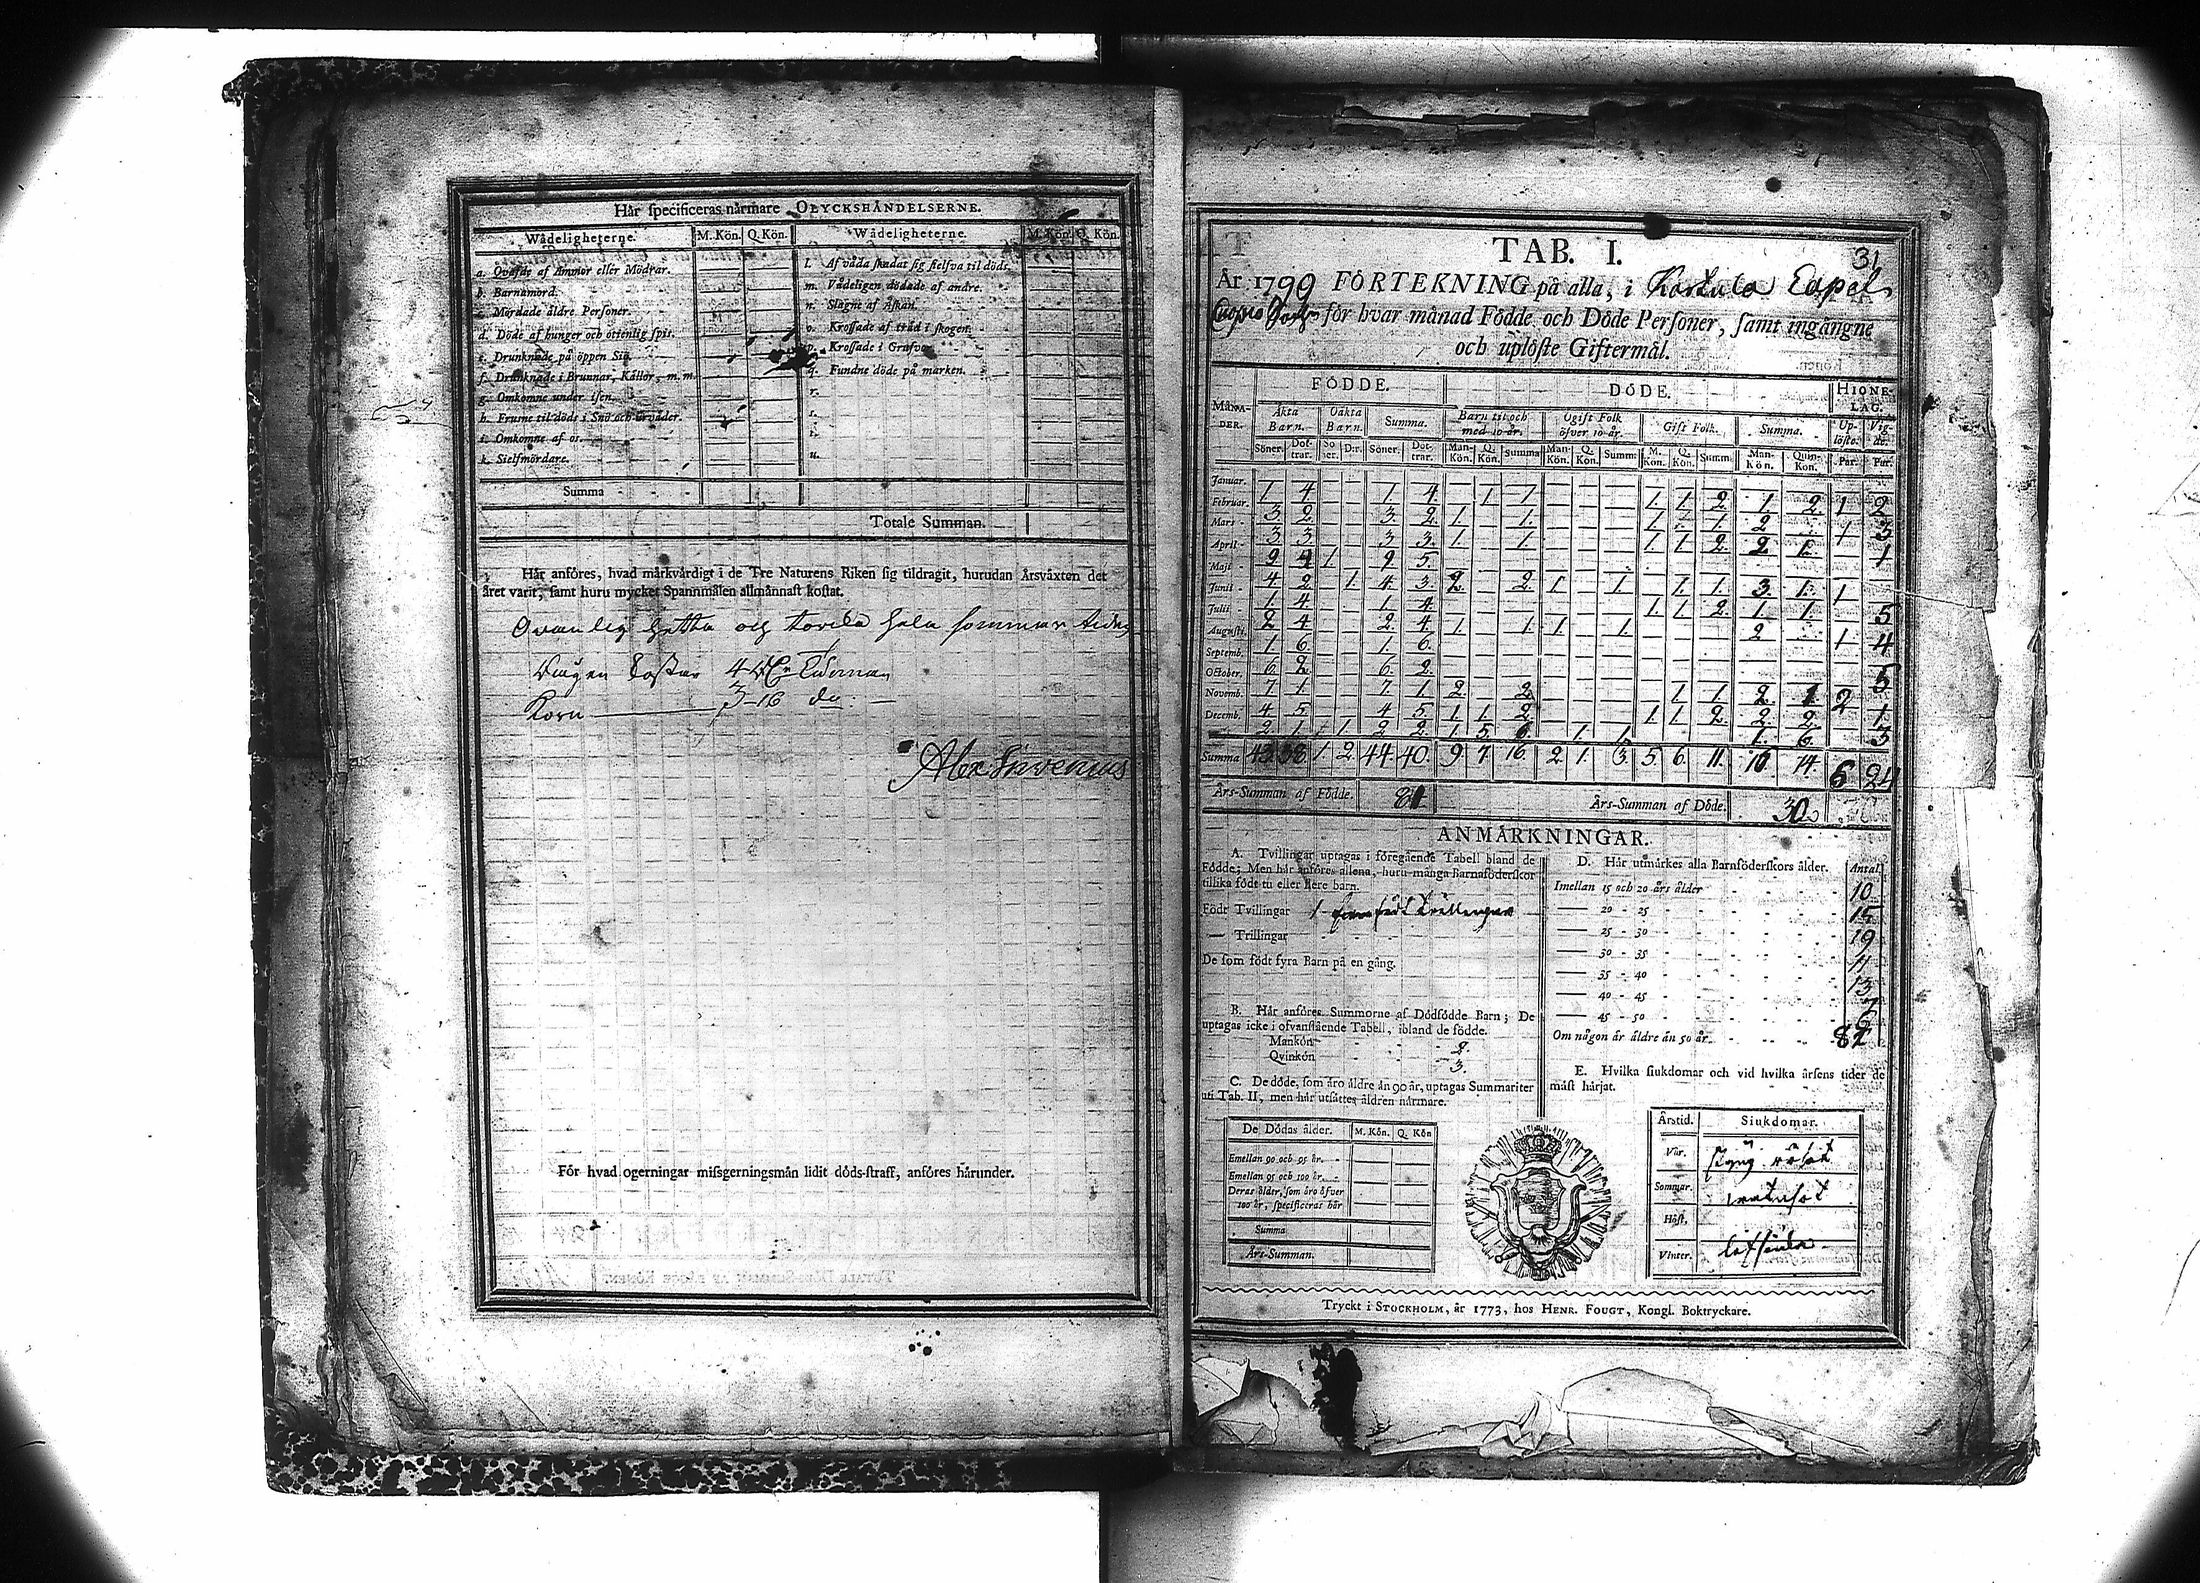 Här specificeras närmare OLYCKSHÄNDELSERNE.
Wådeligheterne. M. Kön. Q. Kön. Wådeligheterne. M. Kön. Q. Kön.
a. Qvafde af Ammor eller Mödrar.
b. Barnamord.
c. Mördade äldre Personer.
d. Döde af hunger och otienlig spis.
e. Drunknade på öppen Siö.
f. Drunknade i Brunnar, Källor, m. m.
g. Omkomne under isen.
h. Frusne til döds i Snö och oväder.
i. Omkomne af os.
k. Sielfmördare.
l. Af våda skadat sig sielfva til döds.
m. Vådeligen dödade af andre.
n. Slagne af Åskan.
o. Krossade af träd i skogen.
p. Krossade i Grufvor
q. Fundne döde på marken.
r.
s.
t.
u.
Summa
Totale Summan.
Här anföres, hvad märkvärdigt i de Tre Naturens Riken sig tildragit, hurudan Årsväxten det
året varit, samt huru mycket Spannmålen allmännast kostat.
Ovanlig hetta och torcka hela sommar tiden
Rågen kostar 4 Rd Tunnan
Korn 3-16 do:
Alex Invenius
För hvad ogerningar missgerningsmän lidit döds-straff, anföres härunder.
31
TAB. I.
År 1799 FÖRTEKNING på alla, i Kartula Capels
för hvar månad Födde och Döde Personer, samt ingångne
och uplöste Giftermål.
MÅNA-DER. FÖDDE. DÖDE. HIONE-LAG.
Äkta Barn. Oäkta Barn. Summa. Barn til och med 10 år. Ogift Folk öfver 10 år. Gift Folk. Summa. Up-löste. Vig-de.
Söner. Dot-trar. So ner. D:r. Söner. Dot-trar. Man-Kön. Q. Kön. Summa Man-Kön. Q. Kön. Summ: M. Kön. Q. Kön. Summ: Man-Kön. Quin-Kön. Par. Par.
Januar. 1 4 — — 1. 4. — 1 1 — — — 1. 1. 2 1. 2 1 2
Februar. 3 2 — — 3. 2. 1 — 1. — — — 1. — 1. 2 — 1 3
Mars 3 3 — — 3 3. 1. — 1. — — — 1. 1 2. 2 1. — 1
April 9 4 1 — 9 5.
Maji 4 2 — 1. 4. 3 2. — 2. 1 — 1 — 1. 1. 3. 1. 1
Junii 1. 4. — — 1. 4. — — — — — — 1. 1. 2 1. 1. — 5
Julii 2 4 — — 2. 4. 1. — 1. 1. — 1. — — — 2 — 1 4
Augusti. 1. 6 — — 1. 6.
Septemb. 6 2 — — 6. 2. — — — — — — — — — — — — 5
October. 7. 1 — — 7. 1 2. — 2. — — — — 1 1. 2. 1 2
Novemb. 4 5 — — 4 5. 1 1 2. — — — 1. 1. 2 2. 2. — 1
Decemb. 2 1 — 1. 2 2. 1. 5 6. — 1. 1. — — — 1. 6. — 3
Summa 43 38 1 2 44 40. 9 7. 16. 2 1. 3 5 6. 11. 16 14. 6 24
Års-Summan af Födde. Års-Summan af Döde. 30
ANMÄRKNINGAR.
A. Tvillingar uptagas i föregående Tabell bland de
Födde; Men här anföres allena, huru många Barnaföderskor
tillika födt tu eller flere barn.
Födt Tvillingar 1
— Trillingar
De som födt fyra Barn på en gång.
B. Här anföres Summorne af Dödfödde Barn; De
uptagas icke i ofvanstående Tabell, ibland de födde.
Mankön 2.
Qvinkön 3.
C. De döde, som äro äldre än 90 år, uptagas Summariter
uti Tab. II, men här utsättes åldren närmare.
De Dödas ålder. M. Kön. Q. Kön
Emellan 90 och 95 år.
Emellan 95 och 100 år.
Deras ålder, som äro öfver
100 år, specificeras här
Summa
Års-Summan.
D. Här utmärkes alla Barnföderskors ålder. Antal
Imellan 15 och 20 års ålder 10
— 20 - 25 15
— 25 - 30 19
— 30 - 35 11
— 35 - 40 13
— 40 - 45 7
— 45 - 50 6
Om någon är äldre än 50 år.
E. Hvilka siukdomar och vid hvilka årsens tider de
mäst härjat.
Årstid. Siukdomar.
Vår.
Sommar.
Höst,
Vinter.
Tryckt i STOCKHOLM, år 1773, hos HENR. FOUGT, Kongl. Boktryckare.